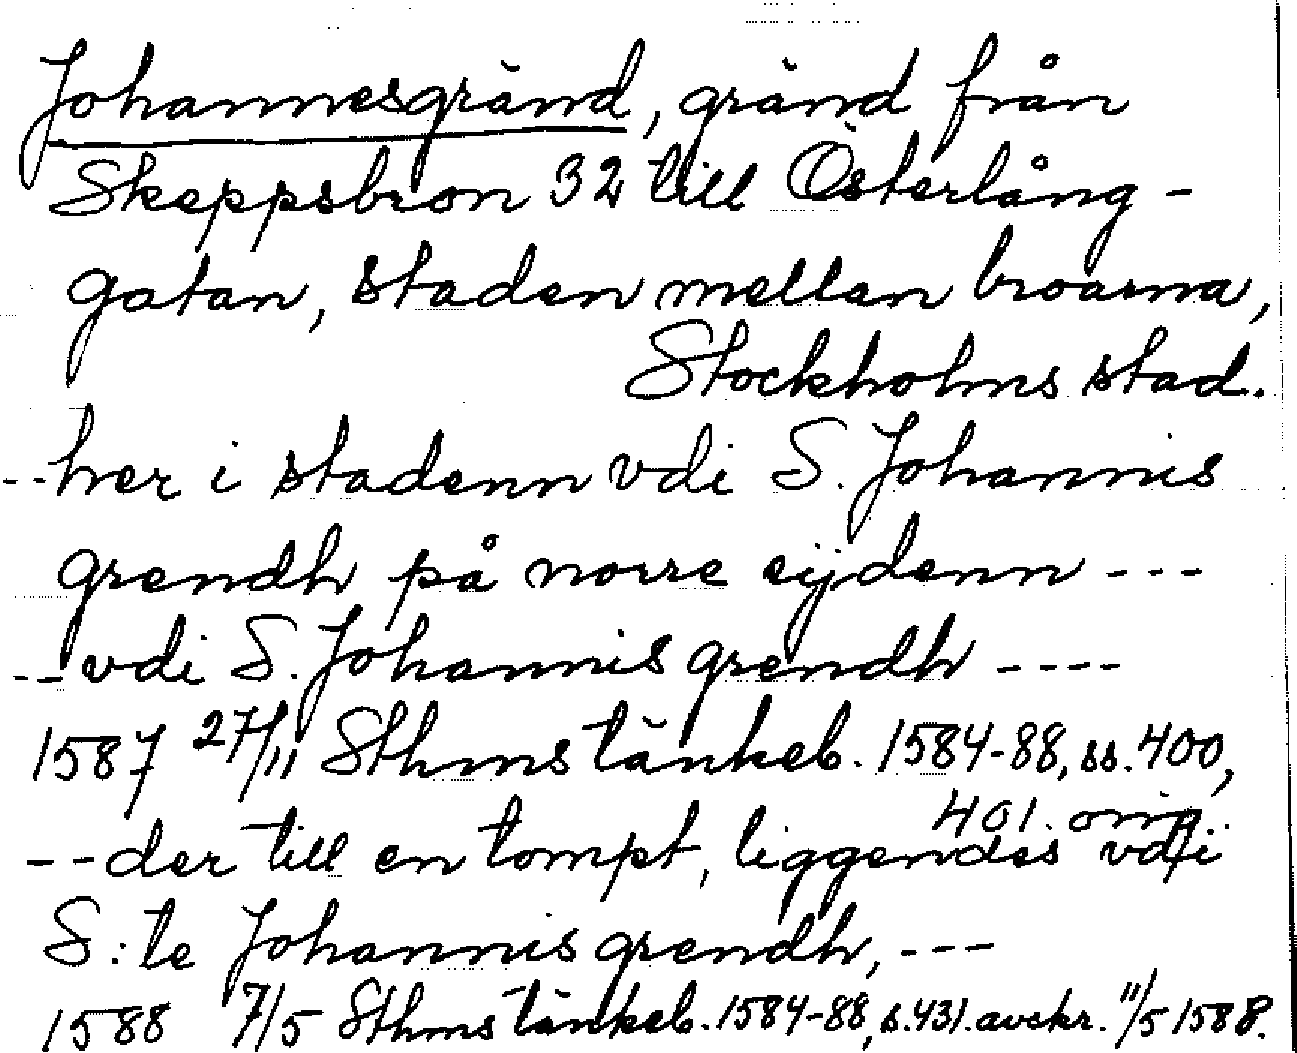 Johannesgränd, gränd från
Skeppsbron 32 till Österlång-
gatan, staden mellan broarna,
Stockholms stad.
--her i stadenn vdi S. Johannis
grendh på norre sijdenn ---
--vdi S. Johannis grendh ----
1587 27/11 Sthms tänkeb. 1584-88, ss. 400,
401. orig.
--der till en tompt, liggendes vdi
S:te Johannis grendh, ---
1588 7/5 Sthms tänkeb. 1584-88, s. 431. avskr. 11/5 1588.